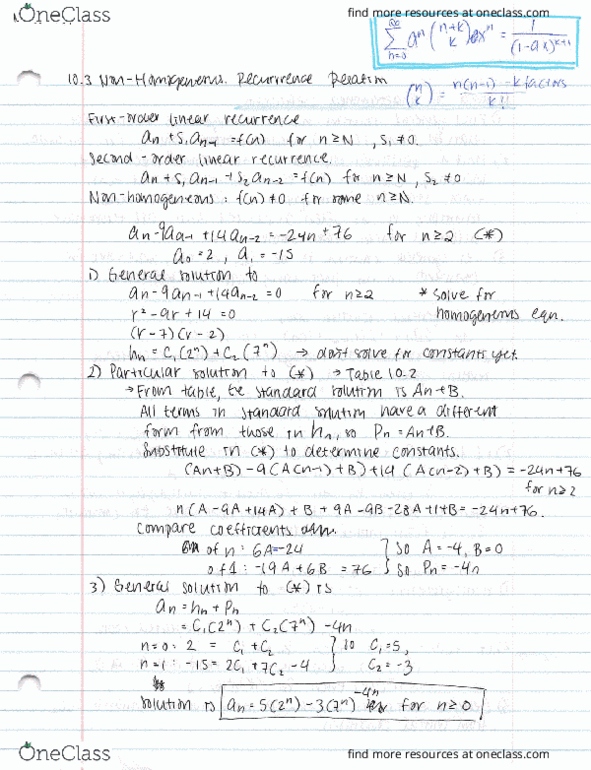 OneClass
find more resources at oneclass.com
∞
∑ aⁿ (n+k k) x^n = 1/(1-ax)^(k+1)
n=0
10.3 Non-Homogenerus. Recurrence Relation
(n k) = n(n-1) - k factors / k!
First-order linear recurrence
an + S1 an-1 = f(n) for n≥N , S1 ≠0.
Second-order linear recurrence.
an + S1 an-1 + S2 an-2 = f(n) for n≥N , S2 ≠0
Non-homogeneous : f(n) ≠0 for some n≥N.
an - 9an-1 + 14an-2 = -24n + 76 for n≥2 (*)
a0 = 2 , a1 = -15
1) General solution to
an - 9an-1 + 14an-2 = 0 for n≥2 * solve for
r² - 9r + 14 = 0 homogenerus eqn.
(r - 7)(r - 2)
hn = C1(2ⁿ) + C2(7ⁿ) → don't solve for constants yet.
2) Particular solution to (*) → Table 10.2
→ From table, the standard solution is An+B.
All terms in standard solution have a different
form from those in hn, so Pn = An+B.
Substitute in (*) to determine constants.
(An+B) - 9(A(n-1) + B) + 14 (A(n-2) + B) = -24n+76
for n≥2
n(A - 9A + 14A) + B + 9A - 9B - 28A + 14B = -24n + 76.
compare coefficients
of n : 6A = -24 } so A = -4, B = 0
of 1 : -19A + 6B = 76 } so Pn = -4n
3) General solution to (*) is
an = hn + Pn
= C1(2ⁿ) + C2(7ⁿ) - 4n
n=0 : 2 = C1 + C2 } so C1 = 5,
n=1 : -15 = 2C1 + 7C2 - 4 } C2 = -3
solution is an = 5(2ⁿ) - 3(7ⁿ) - 4n for n≥0
OneClass
find more resources at oneclass.com